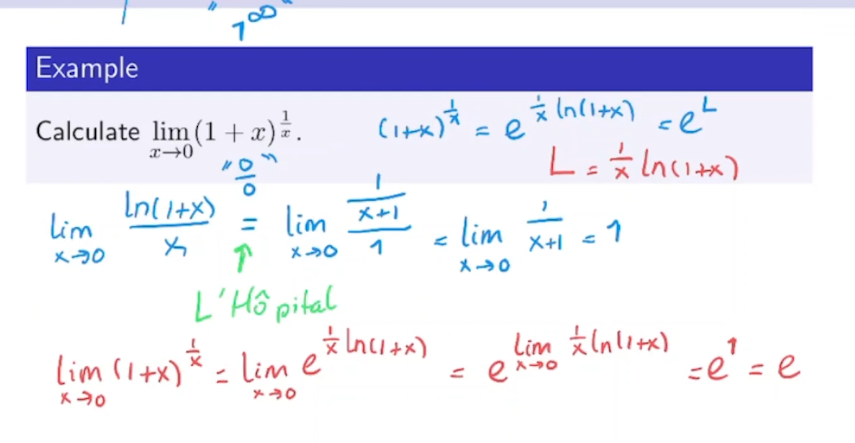 "1^∞"
Example
Calculate lim_{x→0} (1 + x)^{1/x}. (1+x)^{1/x} = e^{1/x ln(1+x)} = e^L
L = 1/x ln(1+x)
"0/0"
lim_{x→0} ln(1+x)/x = lim_{x→0} (1/(x+1))/1 = lim_{x→0} 1/(x+1) = 1
↑
L'Hôpital
lim_{x→0} (1+x)^{1/x} = lim_{x→0} e^{1/x ln(1+x)} = e^{lim_{x→0} 1/x ln(1+x)} = e^1 = e